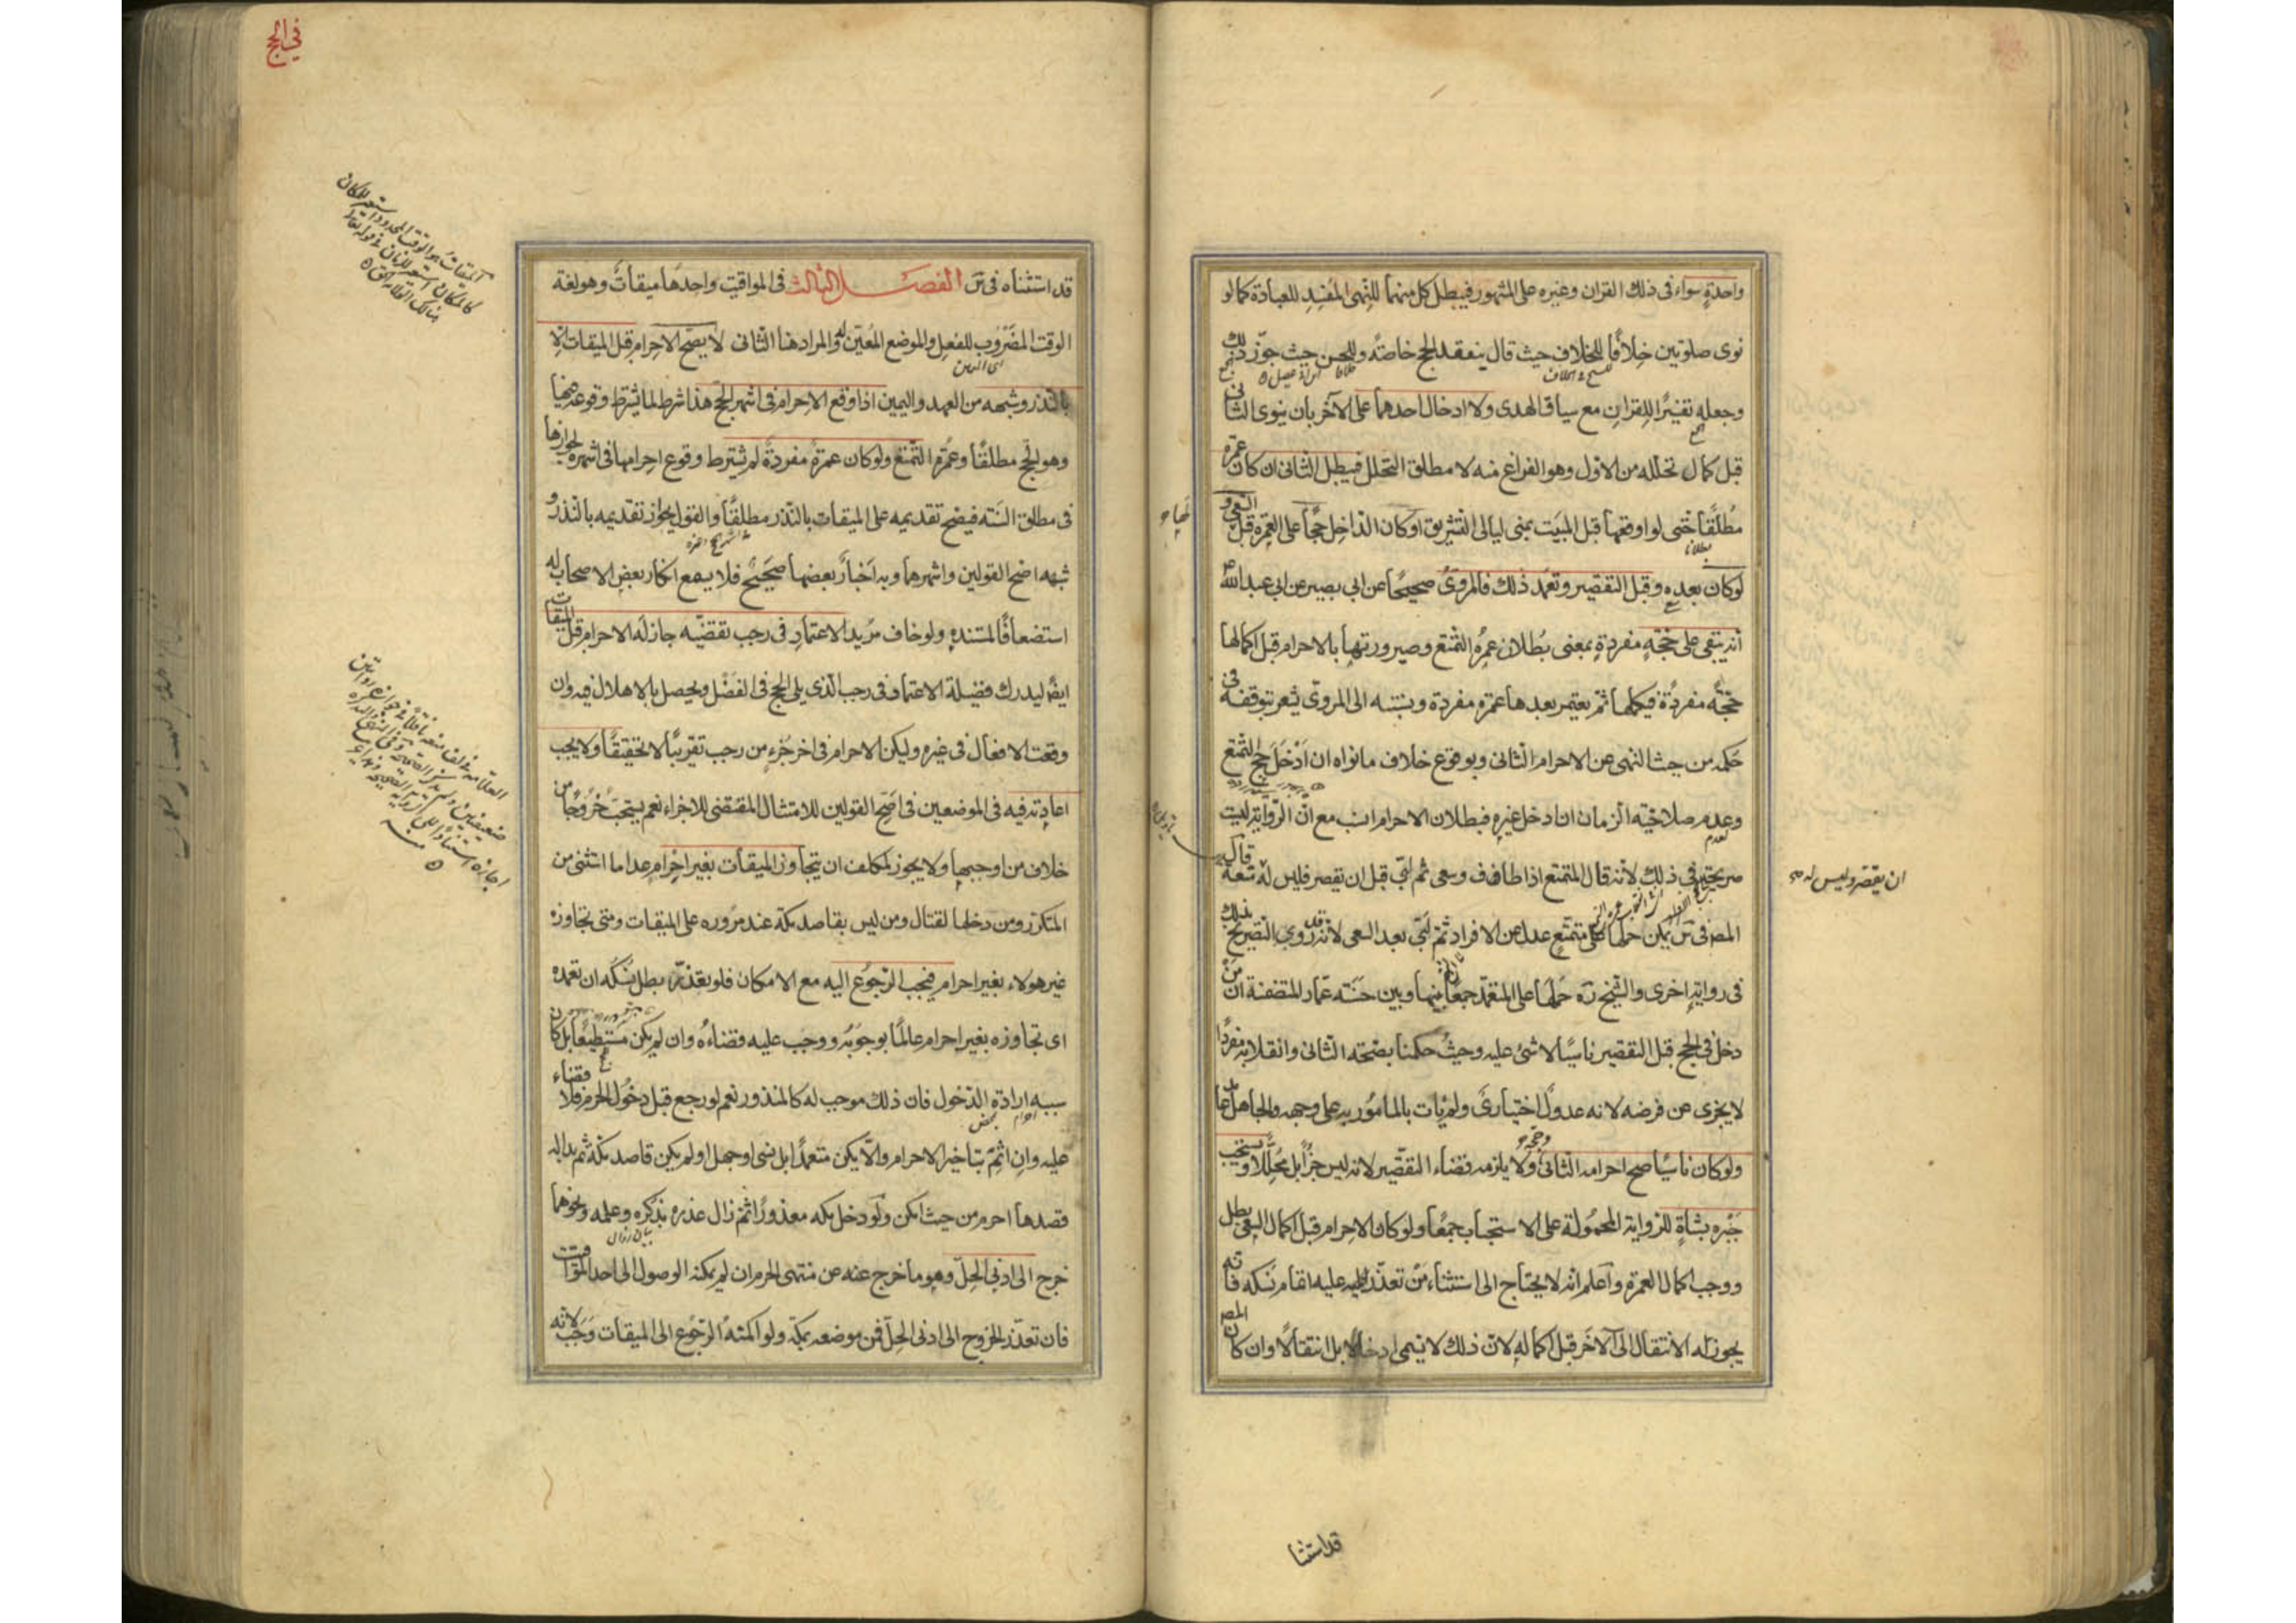 واحدةٍ سواء فى ذلك القران وغيره على المشهور فيبطل كل منهما للنهى المفسِد للعبادة كما لو
نوى صلوتين خِلافًا للخلاف حيث قال ينعقد الحج خاصّة وللحسن حيث جوّز ذلك
وجعله تفسيرًا للقران مع سياق الهدى ولا ادخال احدهما على الآخر بان ينوى الثانى
قبل كمال تحلله من الاول وهو الفراغ منه لا مطلق التحلل فيبطل الثانى ان كان عمرة
مُطلقًا حتى لو اوقعها قبل المبيت بمنى ليالى التشريق اوكان الداخِل حجًّا على العمرة قبل السعى و
لوكان بعده وقبل التقصير وتعمّد ذلك فالمروىّ صحيحًا عن ابى بصير عن ابى عبد الله ع
انه يبقى على حجّةٍ مفردةٍ بمعنى بُطلان عمرة التمتع وصيرورتها بالاحرام قبل اكمالها
حجّه مفردة فيكملها ثم يعتمر بعدها عمرة مفردة ونسبته الى المروىّ يشعر بتوقفه فى
حكمه من حيث النهى عن الاحرام الثانى وبوقوع خلاف ما نواه ان ادْخَلَ حج التمتع
وعدم صلاحيّه الزمان ان ادخل غيره فبطلان الاحرام انسب مع ان الرّواية ليست
صريحة فى ذلك لانه قال المتمتع اذا طاف وسعى ثم لبّى قبل ان يقصر فليس له متعة قال
ان يقصر وليس له
المص فى س يمكن حملها على متمتع عدل عن الافراد ثم لبّى بعد السعى لانه روى التصريح بذلك
فى رواية اخرى والشيخ ره حملها على المتعمّد جمعًا بينها وبين حسنه عمّار المتضمنة ان من
دخل فى الحج قبل التقصير ناسيًا لا شئ عليه وحيث حكمنا بصحته الثانى وانقلابه مفردًا
لا يجزى عن فرضه لانه عدولٌ اختيارىّ ولم يات بالمأمور به على وجهه والجاهل عامد
ولو كان ناسيًا صح احرامه الثانى ولا يلزمه قضاء التقصير لانه ليس جزأً بل مُحلّلا ويستحب
جَبْره بشاةٍ للرواية المحمولة على الاستحباب جمعًا ولو كان الاحرام قبل اكمال السعى بطل
ووجب اكمال العمرة واعلم انه لا يحتاج الى استثناء من تعذّر عليه اتمام نسكه فانه
يجوز له الانتقال الى الآخر قبل اكماله لان ذلك لا يسمى ادخالا بل انتقالا وان كان المص
قداستثنا
فى الحج
قد استثناه فى س الفصل الثالث فى المواقيت واحدها ميقات وهو لغة
الوقت المضروب للفعل والموضع المعيّن له والمراد هنا الثانى لا يصحّ الاحرام قبل الميقات الا
بالنذر وشبهه من العهد واليمين اذا وقع الاحرام فى اشهر الحجّ هذا شرط لما يشترط وقوعه فيها
وهو الحج مطلقًا وعمرة التمتع ولو كان عمرةً مفردةً لم يشترط وقوع احرامها فى اشهره لجوازها
فى مطلق السنه فيصح تقديمه على الميقات بالنذر مطلقًا والقول بجواز تقديمه بالنذر و
شبهه اصح القولين واشهرهما وبه اخبارٌ بعضها صحيحٌ فلا يسمع انكار بعض الاصحاب له
استضعافًا لمستنده ولو خاف مريد الاعتمار فى رجب تقضّيه جاز له الاحرام قبل الميقات
ايضًا ليدرك فضيلة الاعتمار فى رجب الذى يلى الحج فى الفضل ويحصل بالاهلال فيه وان
وقعت الافعال فى غيره وليكن الاحرام فى اخر جزءٍ من رجب تقريبًا لا تحقيقًا ولا يجب
اعادته فيه فى الموضعين فى اصح القولين للامتثال المقتضى للاجزاء نعم يستحبّ خروجًا من
خلاف من اوجبها ولا يجوز لمكلف ان يتجاوز الميقات بغير احرام عدا ما استثنى من
المتكرر ومن دخلها لقتال ومن ليس بقاصد مكّة عند مروره على الميقات ومتى تجاوزه
غير هولاء بغير احرام فيجب الرجوع اليه مع الامكان فلو تعذّر بطل نسكه ان تعمّده
اى تجاوزه بغير احرام عالمًا بوجوبه ووجب عليه قضاءُه وان لم يكن مستطيعًا بل كان
سببه ارادة الدخول فان ذلك موجب له كالمنذور نعم لو رجع قبل دخول الحرم فلا قضاء
عليه وان اثم بتاخير الاحرام والّا يكن متعمدًا بل نسى او جهل او لم يكن قاصد مكّة ثم بدا له
قصدها احرم من حيث امكن ولو دخل مكه معذورًا ثم زال عذره بذكره وعلمه ونحوهما
خرج الى ادنى الحِلّ وهو ما خرج عنه من منتهى الحرم ان لم يمكنه الوصول الى احد المواقيت
فان تعذّر الخروج الى ادنى الحِلّ فمن موضعه بمكّة ولو امكنه الرجوع الى الميقات وجب لانه